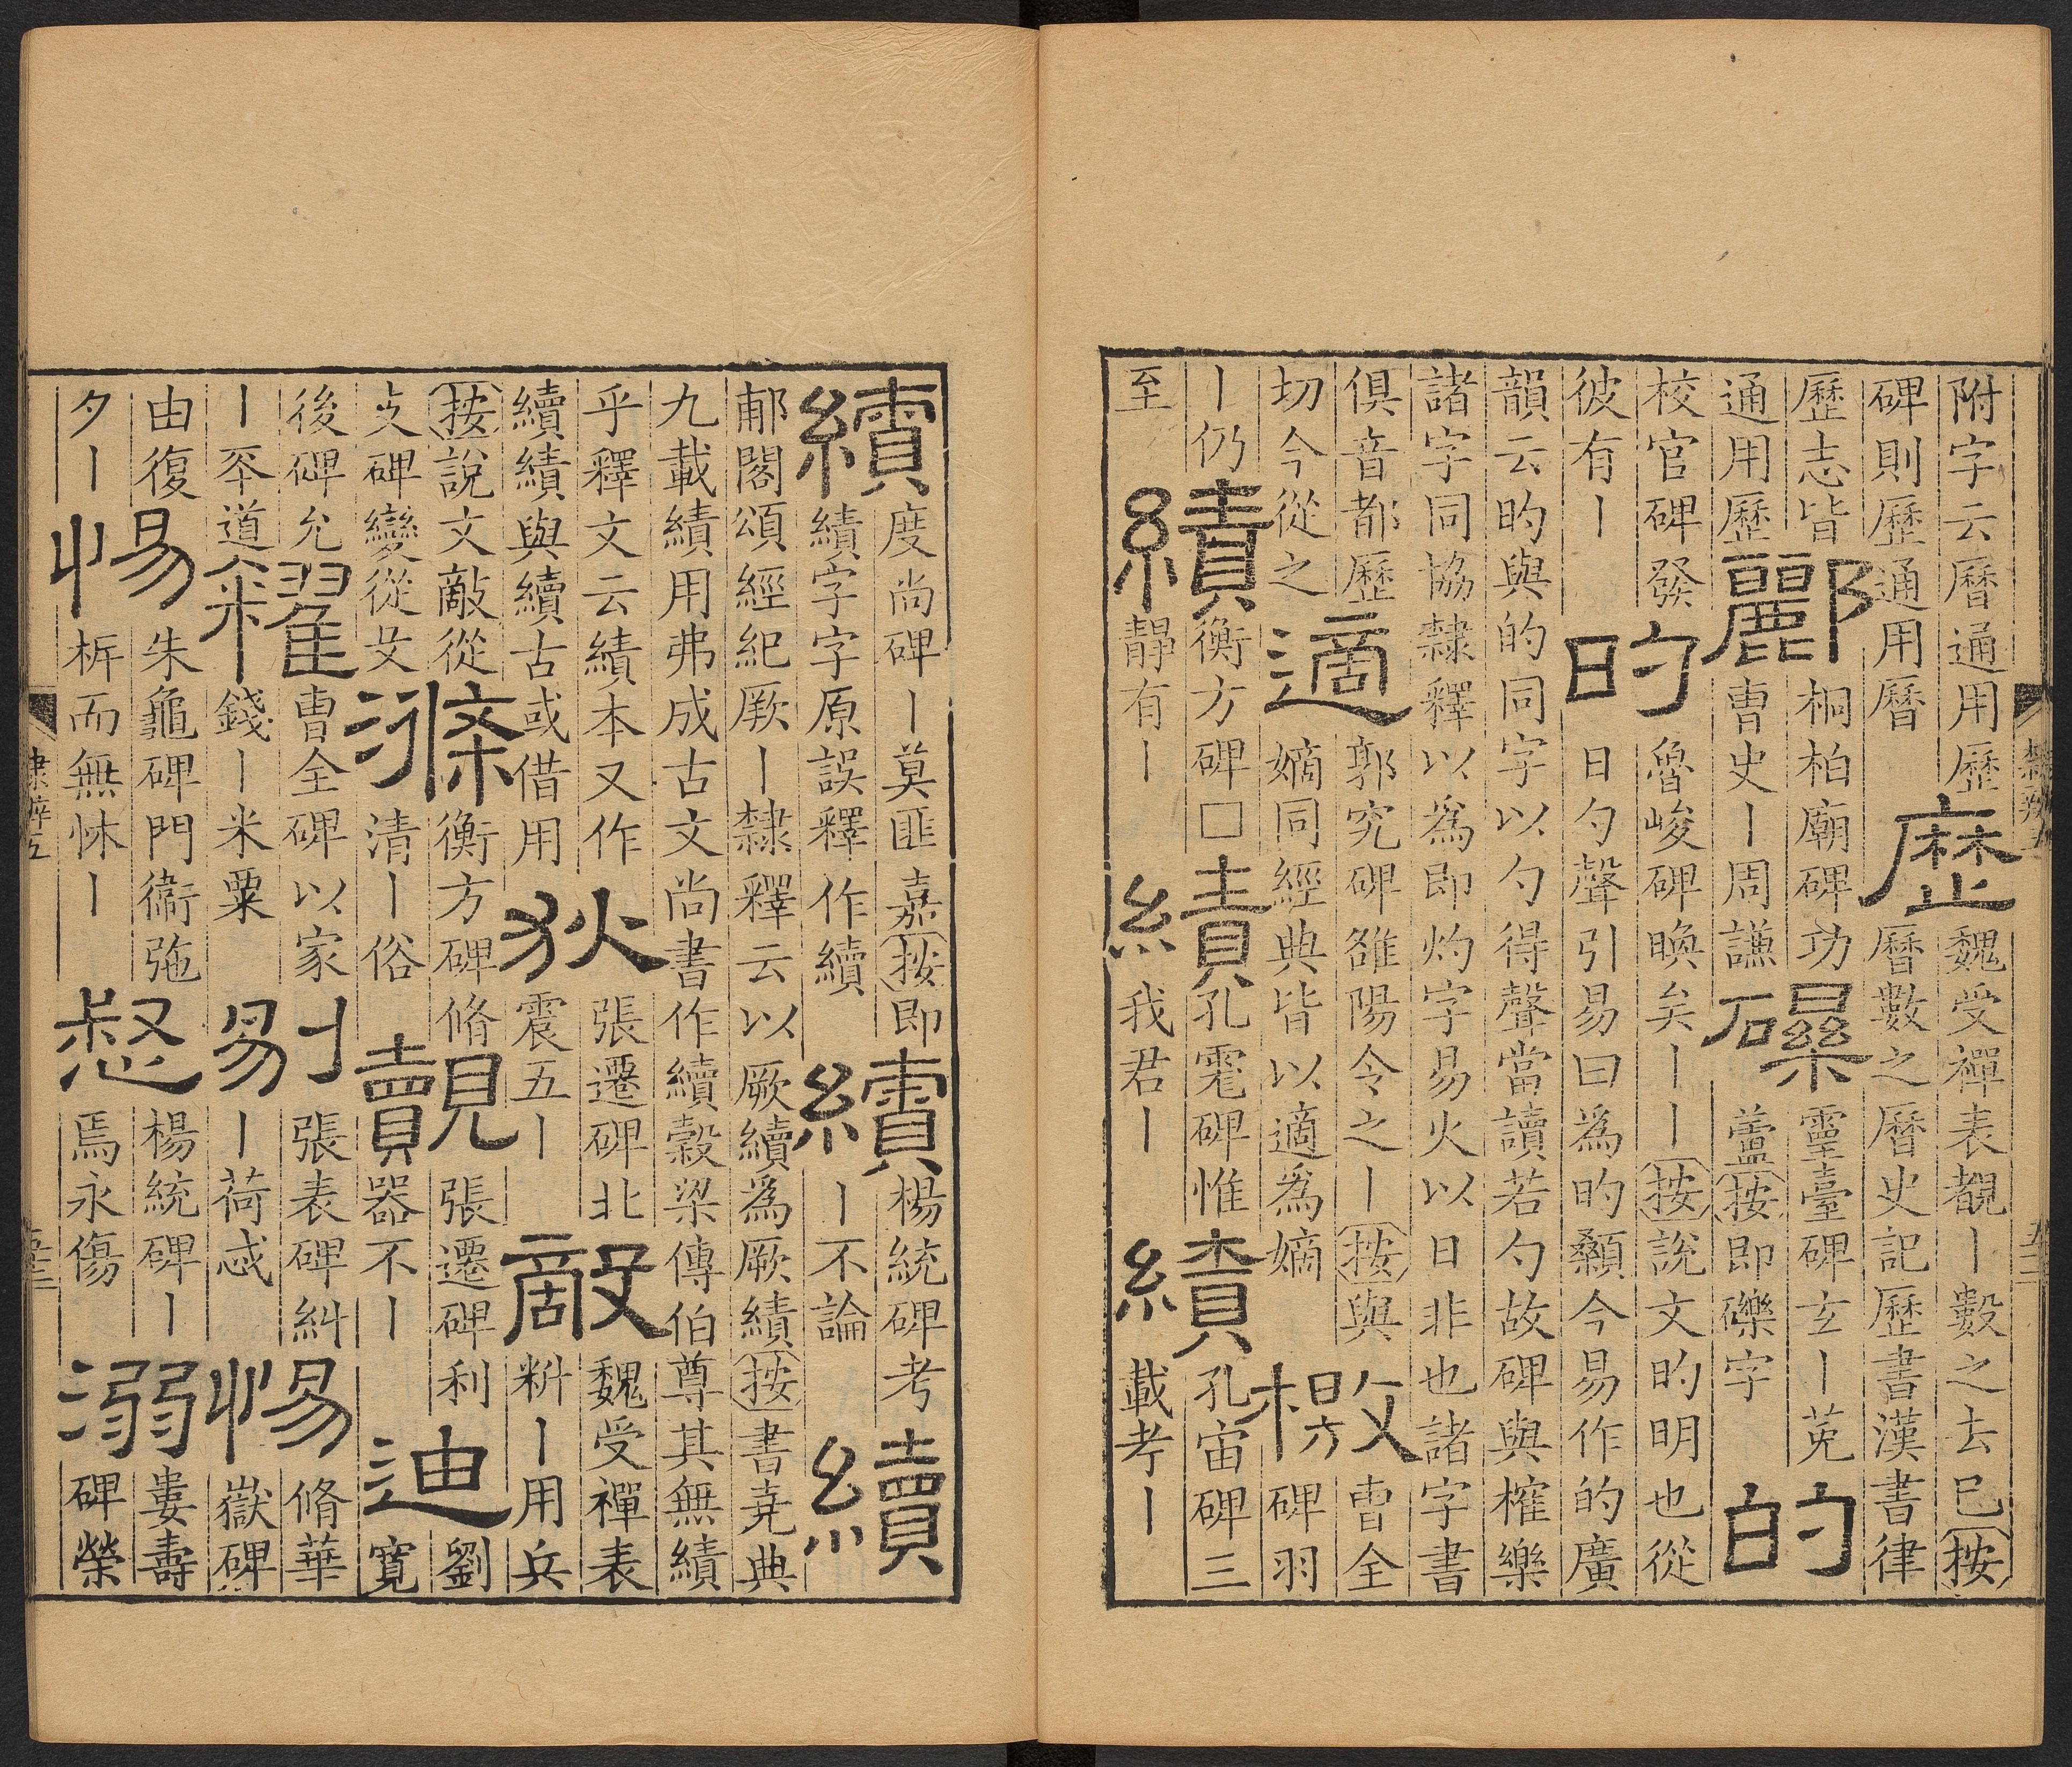 附字云曆通用歷
碑則歷通用曆
歷
魏受禪表覩丨數之去已按
曆數之曆史記歷書漢書律
歷志皆
通用歷
酈
桐柏廟碑功
曹史丨周謙
礫
靈臺碑玄丨莬
蘆按即礫字
的
校官碑發
彼有丨
旳
魯峻碑喚矣丨丨按說文旳明也從
日勺聲引易曰為旳顙今易作的廣
韻云旳與的同字以勺得聲當讀若勺故碑與榷樂
諸字同協隸釋以為即灼字易火以日非也諸字書
俱音都歷
切今從之
適
郭究碑雒陽令之丨按與
嫡同經典皆以適為嫡
檄
曹全
碑羽
丨仍
至
績
衡方碑□
靜有丨
績
孔碑惟
我君丨
績
孔宙碑三
載考丨
隸辨五
續
度尚碑丨莫匪嘉按即
績字字原誤釋作續
續
楊統碑考
丨不論
續
郙閣頌經紀厥丨隸釋云以厥續為厥績按書堯典
九載績用弗成古文尚書作續穀梁傳伯尊其無績
乎釋文云績本又作
續績與續古或借用
狄
張遷碑北
震五丨
敵
魏受禪表
料丨用兵
按說文敵從
攴碑變從殳
滌
衡方碑脩
清丨俗
覿
張遷碑利
器不丨
迪
劉
寬
後碑允
丨㔻道
糴
曹全碑以家
錢丨米粟
剔
張表碑糾
丨荷忒
惕
脩華
嶽碑
由復
夕丨
惕
朱龜碑門衞㢮
柝而無怵丨
惄
楊統碑丨
焉永傷
溺
婁壽
碑榮
隸辨五